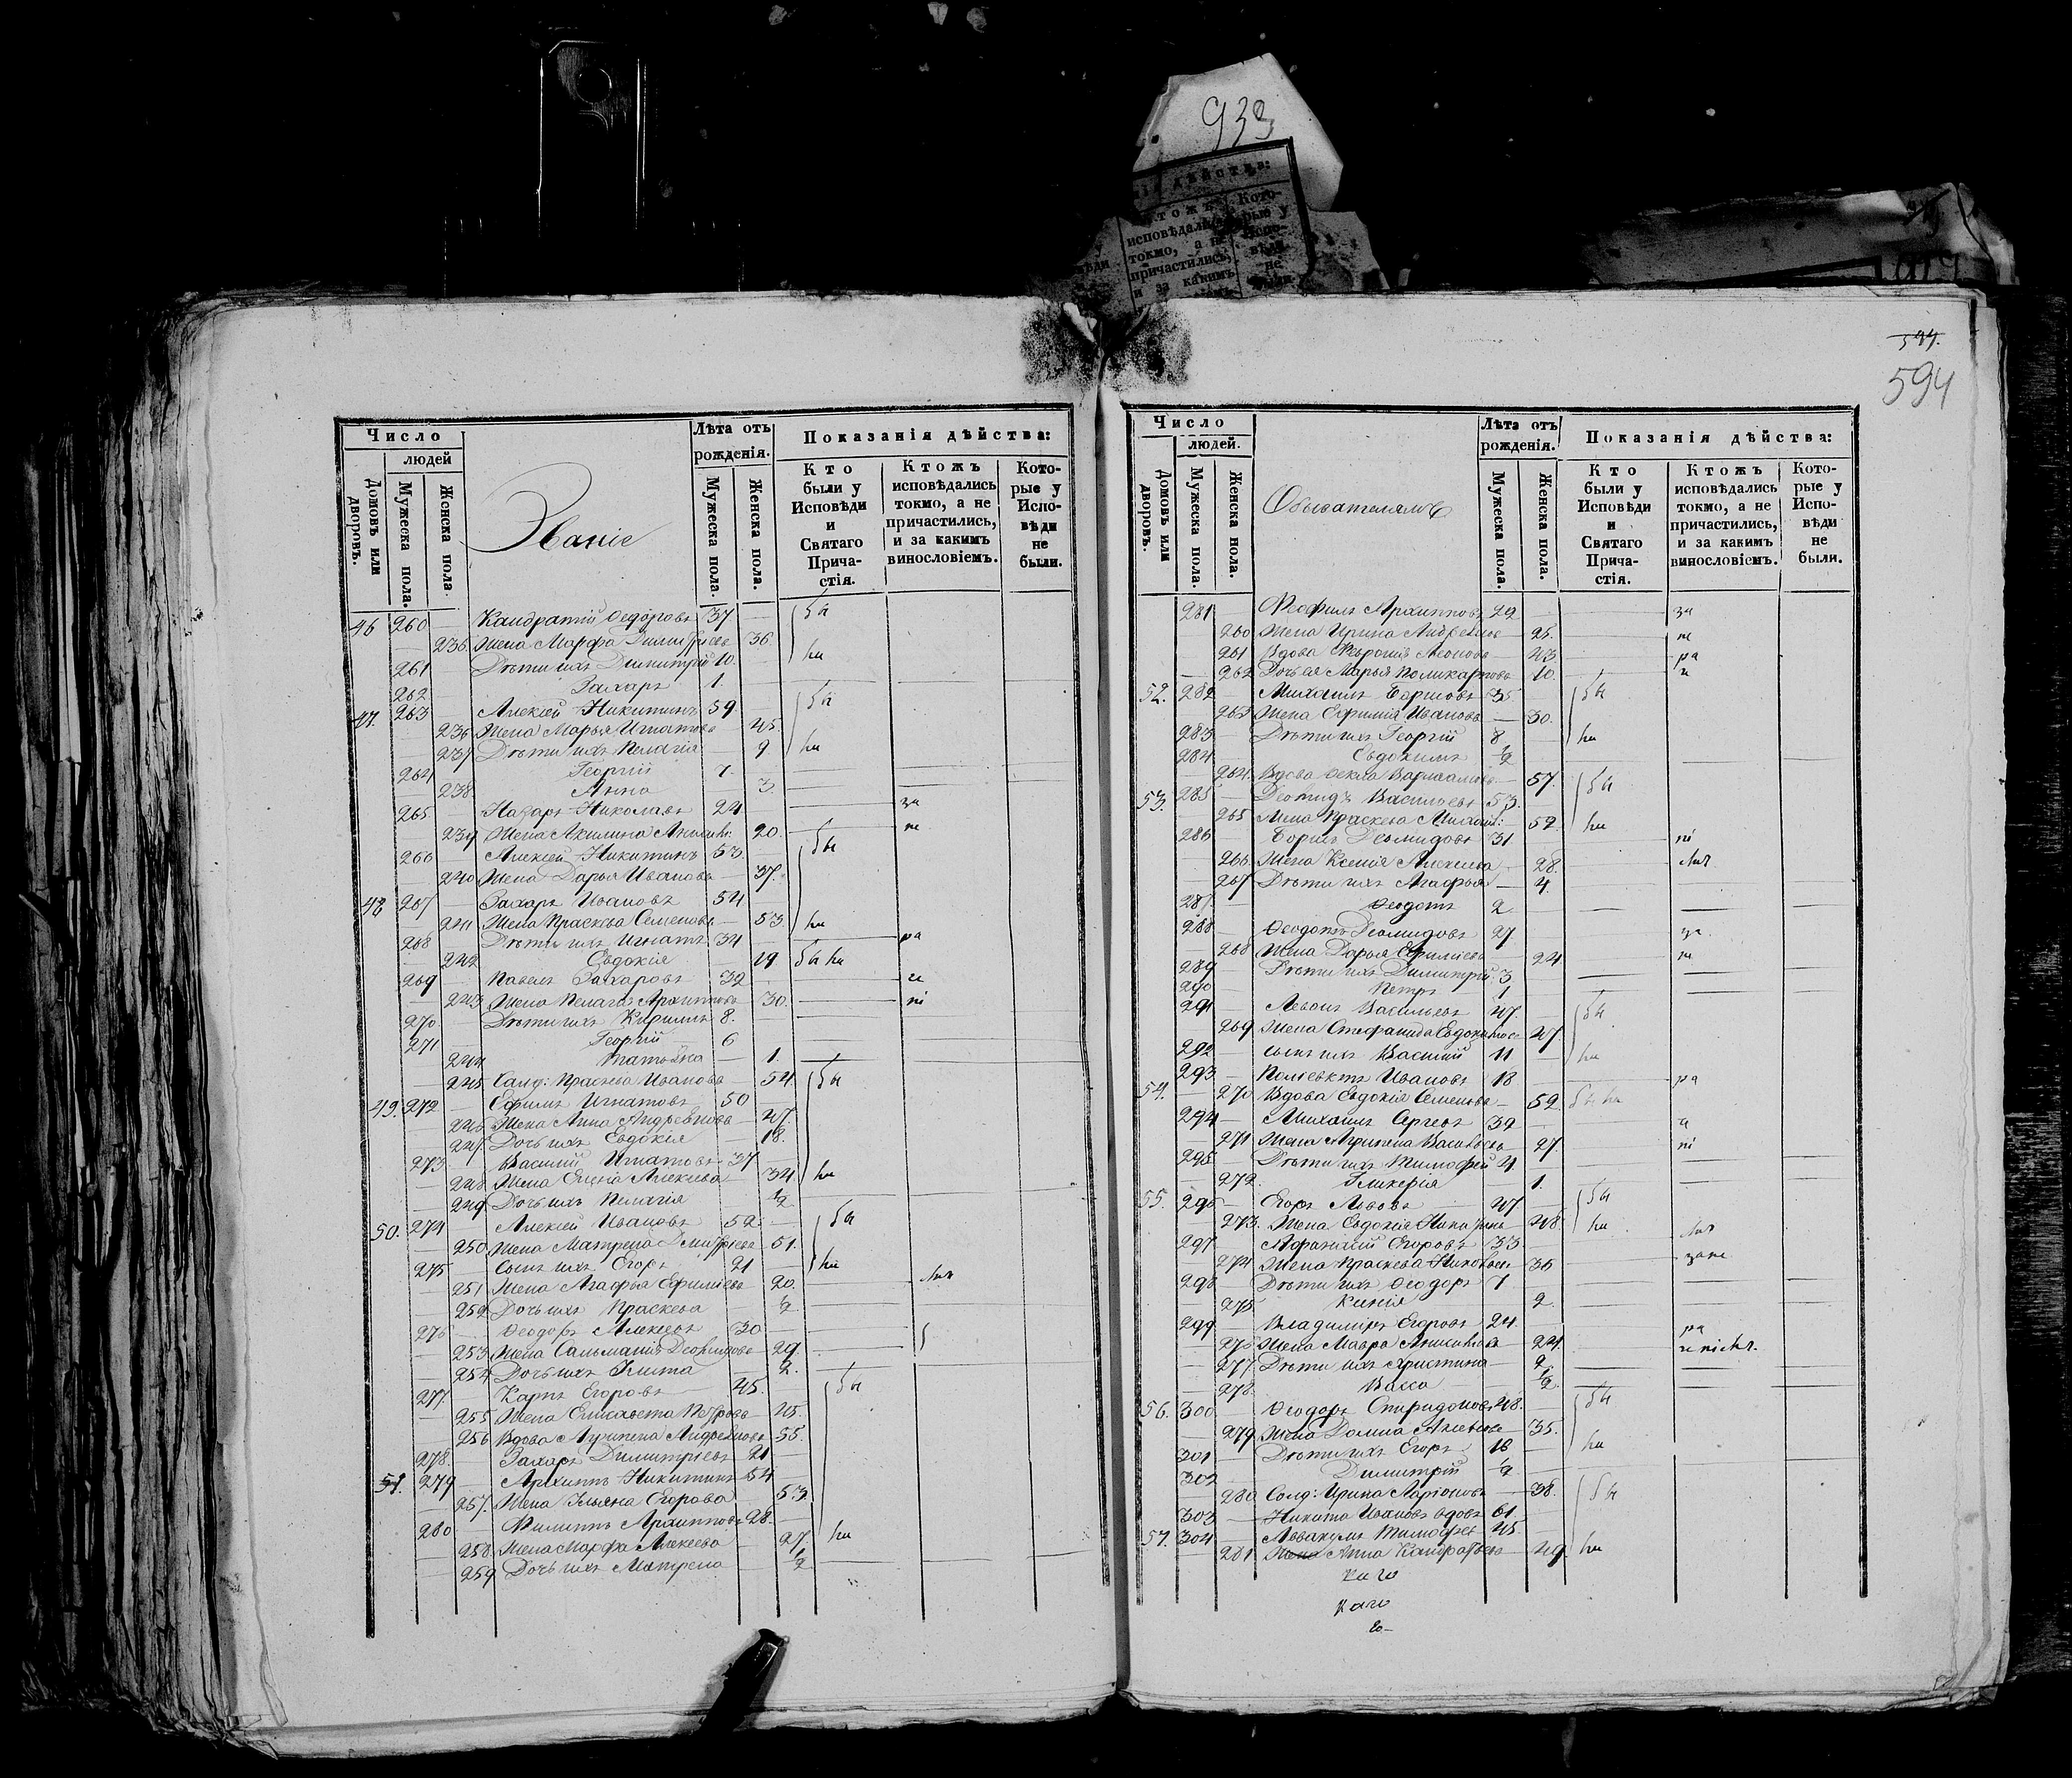 933
594
Число
людей
Домовъ или дворовъ.
Мужеска пола.
Женска пола.
Званіе
Лѣта отъ рожденія.
Мужеска пола.
Женска пола.
Показанія дѣйства:
Кто были у Исповѣди и Святаго Прича-стія.
Ктожъ исповѣдались токмо, а не причастились, и за какимъ винословіемъ.
Кото-рые у Испо-вѣди не были.
46 260 — Кандратій Ѳедоровъ 37 — бы
— 236 Жена Марфа Димитріева — 36.
261 — Дѣти ихъ Димитрій 10. — ли
262 — Захаръ 1.
47. 263 — Алексей Никитинъ 59 — бы
— 236 Жена Марья Игнатова — 45
— 237 Дѣти ихъ Пелагія — 9 ли
264 — Георгій 7.
— 238 Анна — 3
265 — Назаръ Николаевъ 24 — за
— 239 Жена Акилина — 20. не
266 — Алексей Никитинъ 53. — бы
— 240 Жена Дарья Иванова — 37.
48 267 — Захаръ Ивановъ 54
— 241 Жена Праскева Семенова — 53 ли
268 — Дѣти ихъ Игнатъ 34 — ра
— 242 Евдокія — 19 бы ли
269 — Павелъ Захаровъ 32 — че
— 243 Жена Пелагія Архиппова — 30. ні
270 — Дѣти ихъ Кирилъ 8.
271 — Георгій 6
— 244 Татьяна — 1.
— 245 Солд: Праскева Иванова — 54 бы
49. 272 — Ефимъ Игнатовъ 50
— 246 Жена Анна Андреянова — 47.
— 247 Дочь ихъ Евдокія — 18.
273 — Василій Игнатовъ 37
— 248 Жена Елена Алексеева — 34 ли
— 249 Дочь ихъ Пелагія — ½
50. 274 — Алексей Ивановъ 52 — бы
— 250 Жена Матрена Дмитріева — 51.
275 — Сынъ ихъ Егоръ 21 — ли
— 251 Жена Агафья Ефимова — 20.
— 252 Дочь ихъ Праскева — ½
276 — Ѳеодоръ Алексеевъ 30
— 253 Жена — 29.
— 254 Дочь ихъ Улита — 2.
277. — Карпъ Егоровъ 45. — бы
— 255 Жена Елисавета Петрова — 45.
— 256 Вдова Агрипена Андреянова — 55.
278. — Захаръ Димитріевъ 21
51. 279 — Архиппъ Никитинъ 54
— 257. Жена Ульяна Егорова — 53
280 — Филиппъ Архипповъ 28.
— 258 Жена Марфа Алексеева — 27 ли
— 259 Дочь ихъ Матрена — ½
Число
людей.
Домовъ или дворовъ.
Мужеска пола.
Женска пола.
Обывателямъ
Лѣта отъ рожденія.
Мужеска пола.
Женска пола.
Показанія дѣйства:
Кто были у Исповѣди и Святаго Прича-стія.
Ктожъ исповѣдались токмо, а не причастились, и за какимъ винословіемъ.
Кото-рые у Испо-вѣди не были.
281 — Феофилъ Архипповъ 29 — за
— 260 Жена Ирина Андреянова — 25. не
— 261 Вдова Леонова — 43 ра
— 262 Дочь ея Марья Поликарпова — 10. че
52. 282 — Михаилъ Борисовъ 35 — бы
— 263 Жена Ефимія Иванова — 30.
283 — Дѣти ихъ Георгій 8 — ли
284 — Евдокимъ ½
— 264. Вдова Ѳекла Варлаамова — 57. бы
53. 285 — Деомидъ Васильевъ 53.
— 265 Жена Праскева — 52. ли
286 — Борисъ Деомидовъ 31 — ні
— 266. Жена Ксенія Алексеева — 28.
— 267 Дѣти ихъ Агафья — 4
287 — Ѳеодотъ 2
288 — Ѳеодотъ Деомидовъ 27 — за
— 268 Жена Дарья Ефимова — 24 не
289 — Дѣти ихъ Димитрій 3
290 — Петръ 1
291 — Левонъ Васильевъ 47. — бы
— 269 Жена Степанида Евдокимова — 47.
292 — Сынъ ихъ Василій 11 — ли
293 — Полиевктъ Ивановъ 18 — ра
54. — 270 Вдова Евдокія Семенова — 52. бы ли
294 — Михаилъ Сергеевъ 32 — че
— 271 Жена Агрипена Васильева — 27. ні
295 — Дѣти ихъ Тимофей 4.
— 272. Гликерія — 1.
55. 296 — Егоръ Львовъ 47 — бы
— 273. Жена Евдокія — 48. ли
297 — Афанасій Егоровъ 33
— 274 Жена Праскева — 36 зане
298 — Дѣти ихъ Ѳеодоръ 7
— 275 Ксенія — 2.
299 — Владимиръ Егоровъ 24. — ра
— 276 Жена Мавра — 24.
— 277. Дѣти ихъ Христина — 2
— 278. Васса — ½
56. 300 — Ѳеодоръ Спиридоновъ 48. — бы
— 279 Жена Домна — 35.
301 — Дѣти ихъ Егоръ 16 — ли
302 — Димитрій ½
— 280 Солд: Ирина Ларіонова — 38. бы
303 — Никита Ивановъ вдовъ 61
57. 304 — Аввакумъ Тимофеевъ 45
— 281 Жена Анна Кандратьева — 49 ли